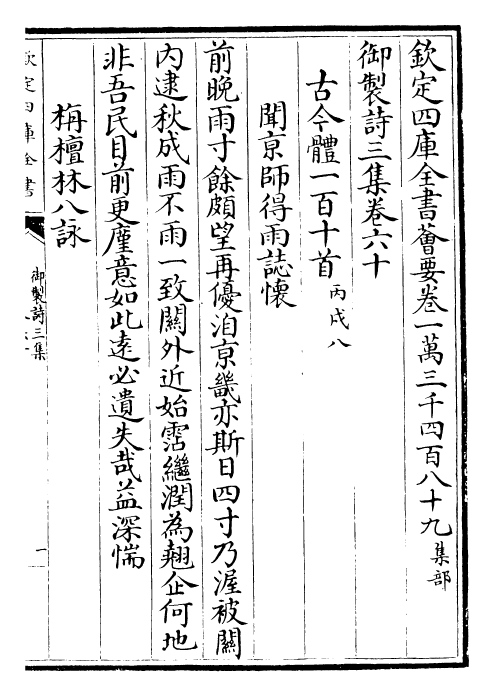 欽定四庫全書薈要卷一萬三千四百八十九集部
御製詩三集卷六十
古今體一百十首丙戌八
聞京師得雨誌懷
前晚雨寸餘頗望再優洎京畿亦斯日四寸乃渥被關
內逮秋成雨不雨一致關外近始霑繼潤為翹企何地
非吾民目前更廑意如此遠必遺失哉益深惴
栴檀林八詠
欽定四庫全書
御製詩三集
一